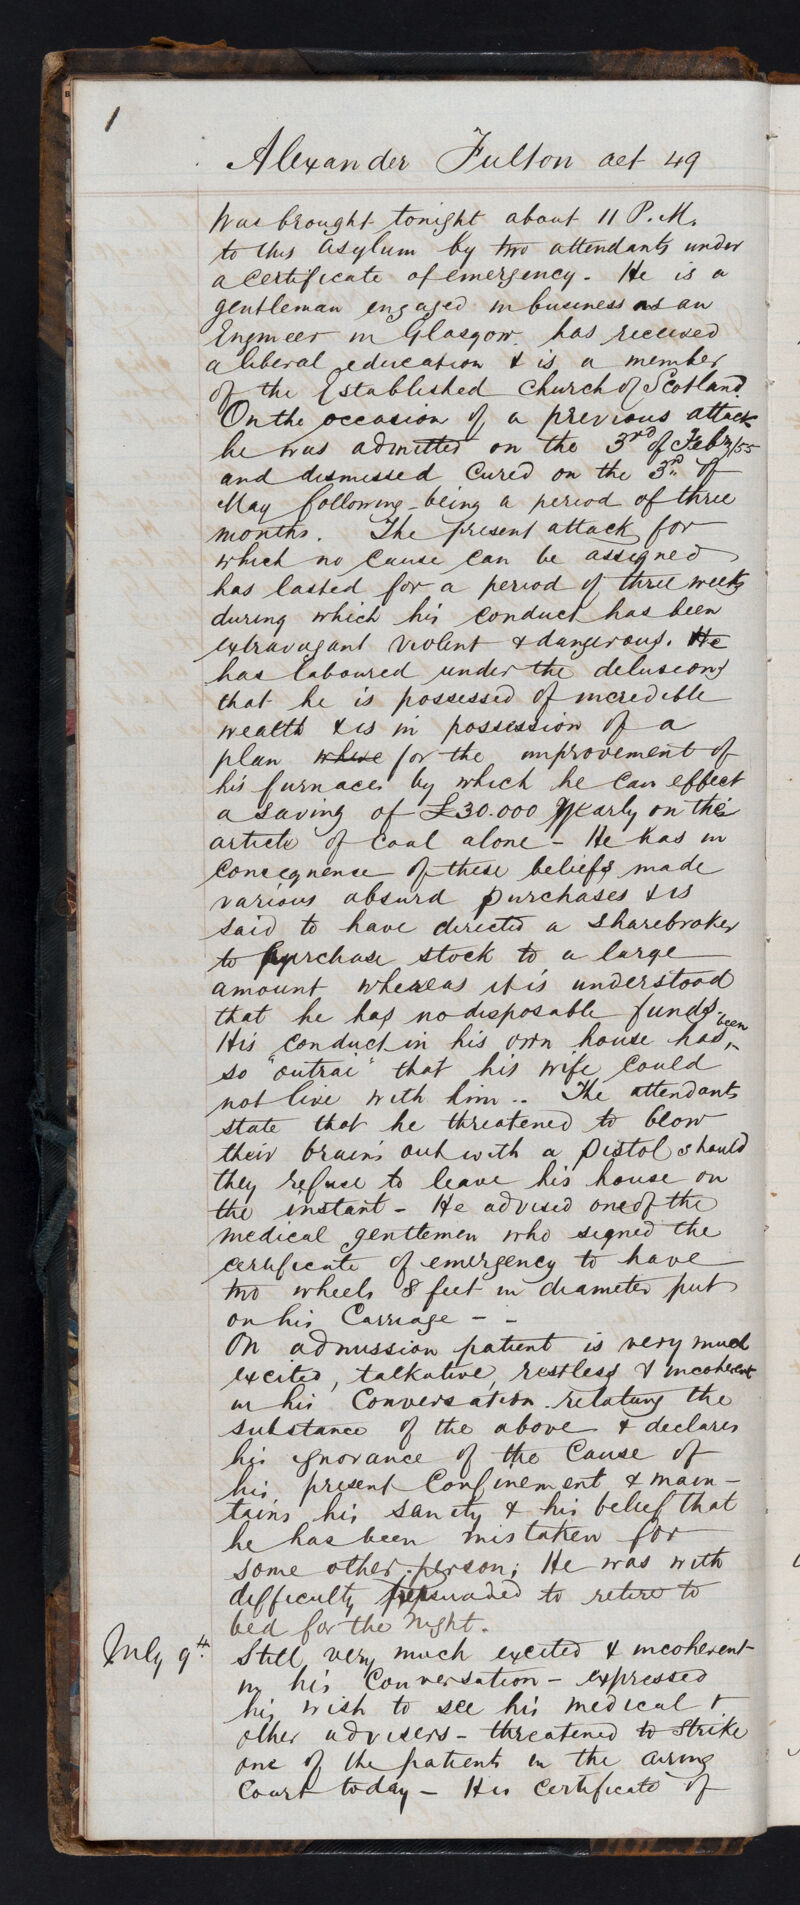 1
Alexander Fulton aet 49
Was brought tonight about 11 P.M.
to this Asylum by two attendants under
a certificate of emergency. He is a
gentleman engaged in business as an
Engineer in Glasgow. has received
a liberal education & is a member
of the Established Church of Scotland.
On the occasion of a previous attack
he was admitted on the 3rd of Feby/55
and dismissed Cured on the 3rd of
May following - being a period of three
months. The present attack for
which no cause can be assigned
has lasted for a period of three weeks
during which his conduct has been
extravagant violent & dangerous. He
has laboured under the delusions
that he is possessed of incredible
wealth & is in possession of a
plan where for the improvement of
his furnaces by which he can effect
a saving of £30.000 yearly on the
article of coal alone - He has in
consequence of these beliefs made
various absurd purchases & is
said to have directed a sharebroker
to purchase stock to a large
amount whereas it is understood
that he has no disposable funds.
His conduct in his own house has been
so "outrai" that his wife could
not live with him.. The attendants
state that he threatened to blow
their brains out with a pistol should
they refuse to leave his house on
the instant - He advised one of the
medical gentlemen who signed the
certificate of emergency to have
two wheels 8 feet in diameter put
on his Carriage - -
On admission patient is very much
excited, talkative, restless & incoherent
in his Conversation - relating the
substance of the above & declares
his ignorance of the Cause of
his present Confinement & main-
tains his sanity & his belief that
he has been mistaken for
some other person; He was with
difficulty persuaded to retire to
bed for the night.
July 9th. Still very much excited & incoherent
in his Conversation - expressed
his wish to see his medical &
other advisers - threatened to strike
one of the patients in the airing
Court today - His certificate of